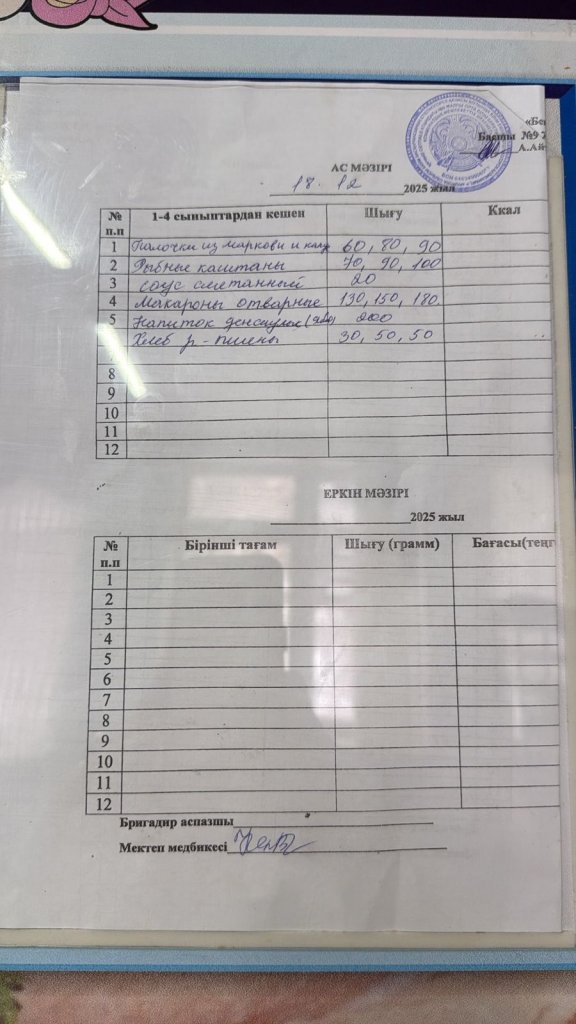 «Бе
Басшы №9
А.Ай
АС МӘЗІРІ
18. 12 2025 жыл
№ п.п 1-4 сыныптардан кешен Шығу Ккал
1 Палочки из маркови и кап 60, 80, 90
2 Рыбные каштаны 70, 90, 100
3 соус сметанный 20
4 Макароны отварные 130, 150, 180.
5 Напиток 200
Хлеб р - пшены 30, 50, 50
7
8
9
10
11
12
ЕРКІН МӘЗІРІ
2025 жыл
№ п.п Бірінші тағам Шығу (грамм) Бағасы(теңг
1
2
3
4
5
6
7
8
9
10
11
12
Бригадир аспазшы
Мектеп медбикесі